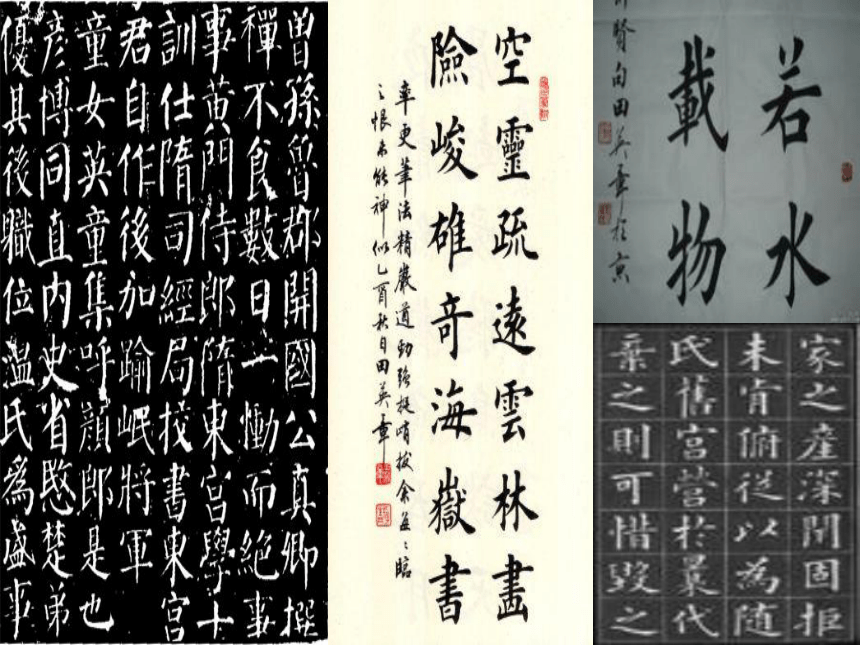 曾孫魯郡開國公真卿撰
禪不食數日一慟而絕事
事黃門侍郎隋東宮學士
訓仕隋司經局校書東宮
君自作後加踰岷將軍
童女英童集呼顏郎是也
彥博同直內史省愍楚弟
優其後職位溫氏為盛事
空靈疏遠雲林畫
險峻雄奇海嶽書
率更筆法精嚴遒勁強挺峭拔余每每臨
之恨未能神似乙酉秋日田英章
若水
載物
賢句田英章於京
家之產深閉固拒
未肯俯從以為隨
氏舊宮營於曩代
棄之則可惜毀之